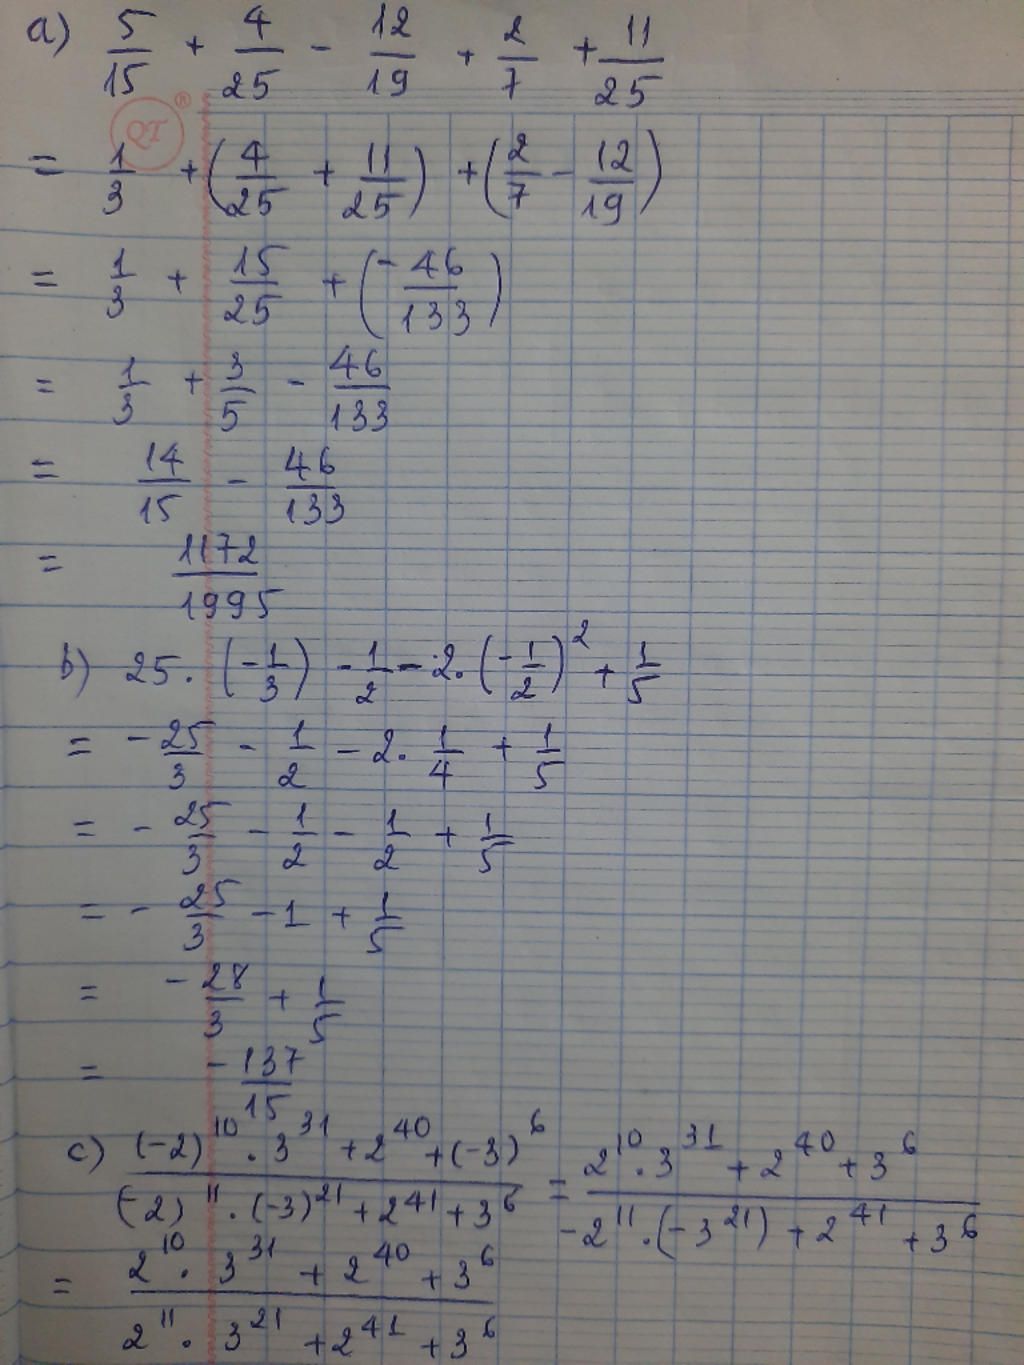 a) 5/15 + 4/25 - 12/19 + 2/7 + 11/25
QT ®
= 1/3 + (4/25 + 11/25) + (2/7 - 12/19)
= 1/3 + 15/25 + (-46/133)
= 1/3 + 3/5 - 46/133
= 14/15 - 46/133
= 1172/1995
b) 25 . (-1/3) - 1/2 - 2 . (-1/2)^2 + 1/5
= -25/3 - 1/2 - 2 . 1/4 + 1/5
= -25/3 - 1/2 - 1/2 + 1/5
= -25/3 - 1 + 1/5
= -28/3 + 1/5
= -137/15
c) ((-2)^10 . 3^31 + 2^40 + (-3)^6)/((-2)^11 . (-3)^21 + 2^41 + 3^6) = (2^10 . 3^31 + 2^40 + 3^6)/(-2^11 . (-3^21) + 2^41 + 3^6)
= (2^10 . 3^31 + 2^40 + 3^6)/(2^11 . 3^21 + 2^41 + 3^6)